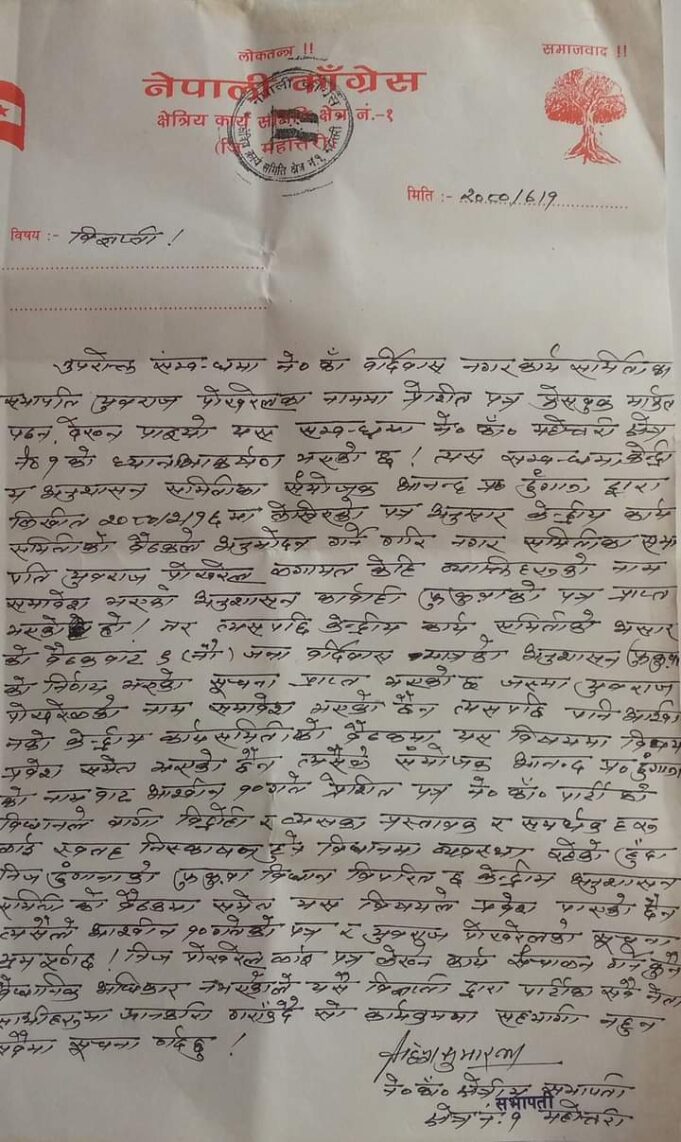 लोकतन्त्र !!
समाजवाद !!
नेपाली काँग्रेस
क्षेत्रिय कार्य समिति क्षेत्र नं.-१
(जि. महोत्तरी)
मिति :- २०८०/६/१
विषय :- विज्ञप्ती !
उपरोक्त सम्बन्धमा ने० काँ बर्दिवास नगर कार्य समितिका
सभापति युवराज पोखरेलका नाममा प्रेशीत पत्र फेसवुक मार्फत
पढन, देख्न पाइयो यस सम्बन्धमा ने० काँ० महोत्तरी क्षेत्र
नं० १ को ध्यानआकर्षण भएको छ ! त्यस सम्बन्धमा केन्द्री
य अनुशासन समितिका संयोजक आनन्द प्र० ढुंगाना द्वारा
लिखीत २०८०/२/१६ मा लेखिएको पत्र अनुसार केन्द्रीय कार्य
समितिको बैठकले अनुमोदन गर्ने गरि नगर समितिका सभा
पति युवराज पोखरेल लगायत केहि व्यक्तिहरुको नाम
समावेश भएको अनुशासन कार्वाही फुकुवाको पत्र प्राप्त
भएको हो ! तर त्यसपछि केन्द्रीय कार्य समितिको असार
को बैठक बाट ९ (नौ) जना बर्दिवास मात्रको अनुशासन फुकुवा
को निर्णय भएको सूचना प्राप्त भएको छ जसमा युवराज
पोखरेलको नाम समावेश भएको छैन त्यसपछि पनि आश्वी
नको केन्द्रीय कार्यसमितिको बैठकमा यस विषयमा विषय
प्रवेश समेत भएको छैन त्यसैले संयोजक आनन्द प्र० ढुंगाना
को नाम बाट आश्वीन १० गते प्रेशित पत्र ने० काँ० पार्टी को
विधानले बागी विद्रोही र त्यसका प्रस्तावक र समर्थक हरु
लाई स्वतह निस्काषन हुने विधानमा व्यवस्था रहेको हुँदा
निज ढुंगानाको फुकुवा विधान विपरित छ केन्द्रीय अनुशासन
समिति को बैठकमा समेत यस विषयले प्रवेश पाएको छैन
त्यसैले आश्वीन १० गतेको पत्र र युवराज पोखरेलको सूचना
भ्रमपूर्ण छ ! निज पोखरेल लाई पत्र लेख्न कार्य संचालन गर्न कुनै
बैधानिक अधिकार नभएकोले यसै विज्ञप्ती द्वारा पार्टीका सवै नेता
साथीहरुमा जानकारी गराउँदै सो कार्यक्रममा सहभागी नहुन
सवैमा सूचना गर्दछु !
ने० काँ० क्षेत्रीय सभापती
सभापती
क्षेत्र नं. १ महोत्तरी